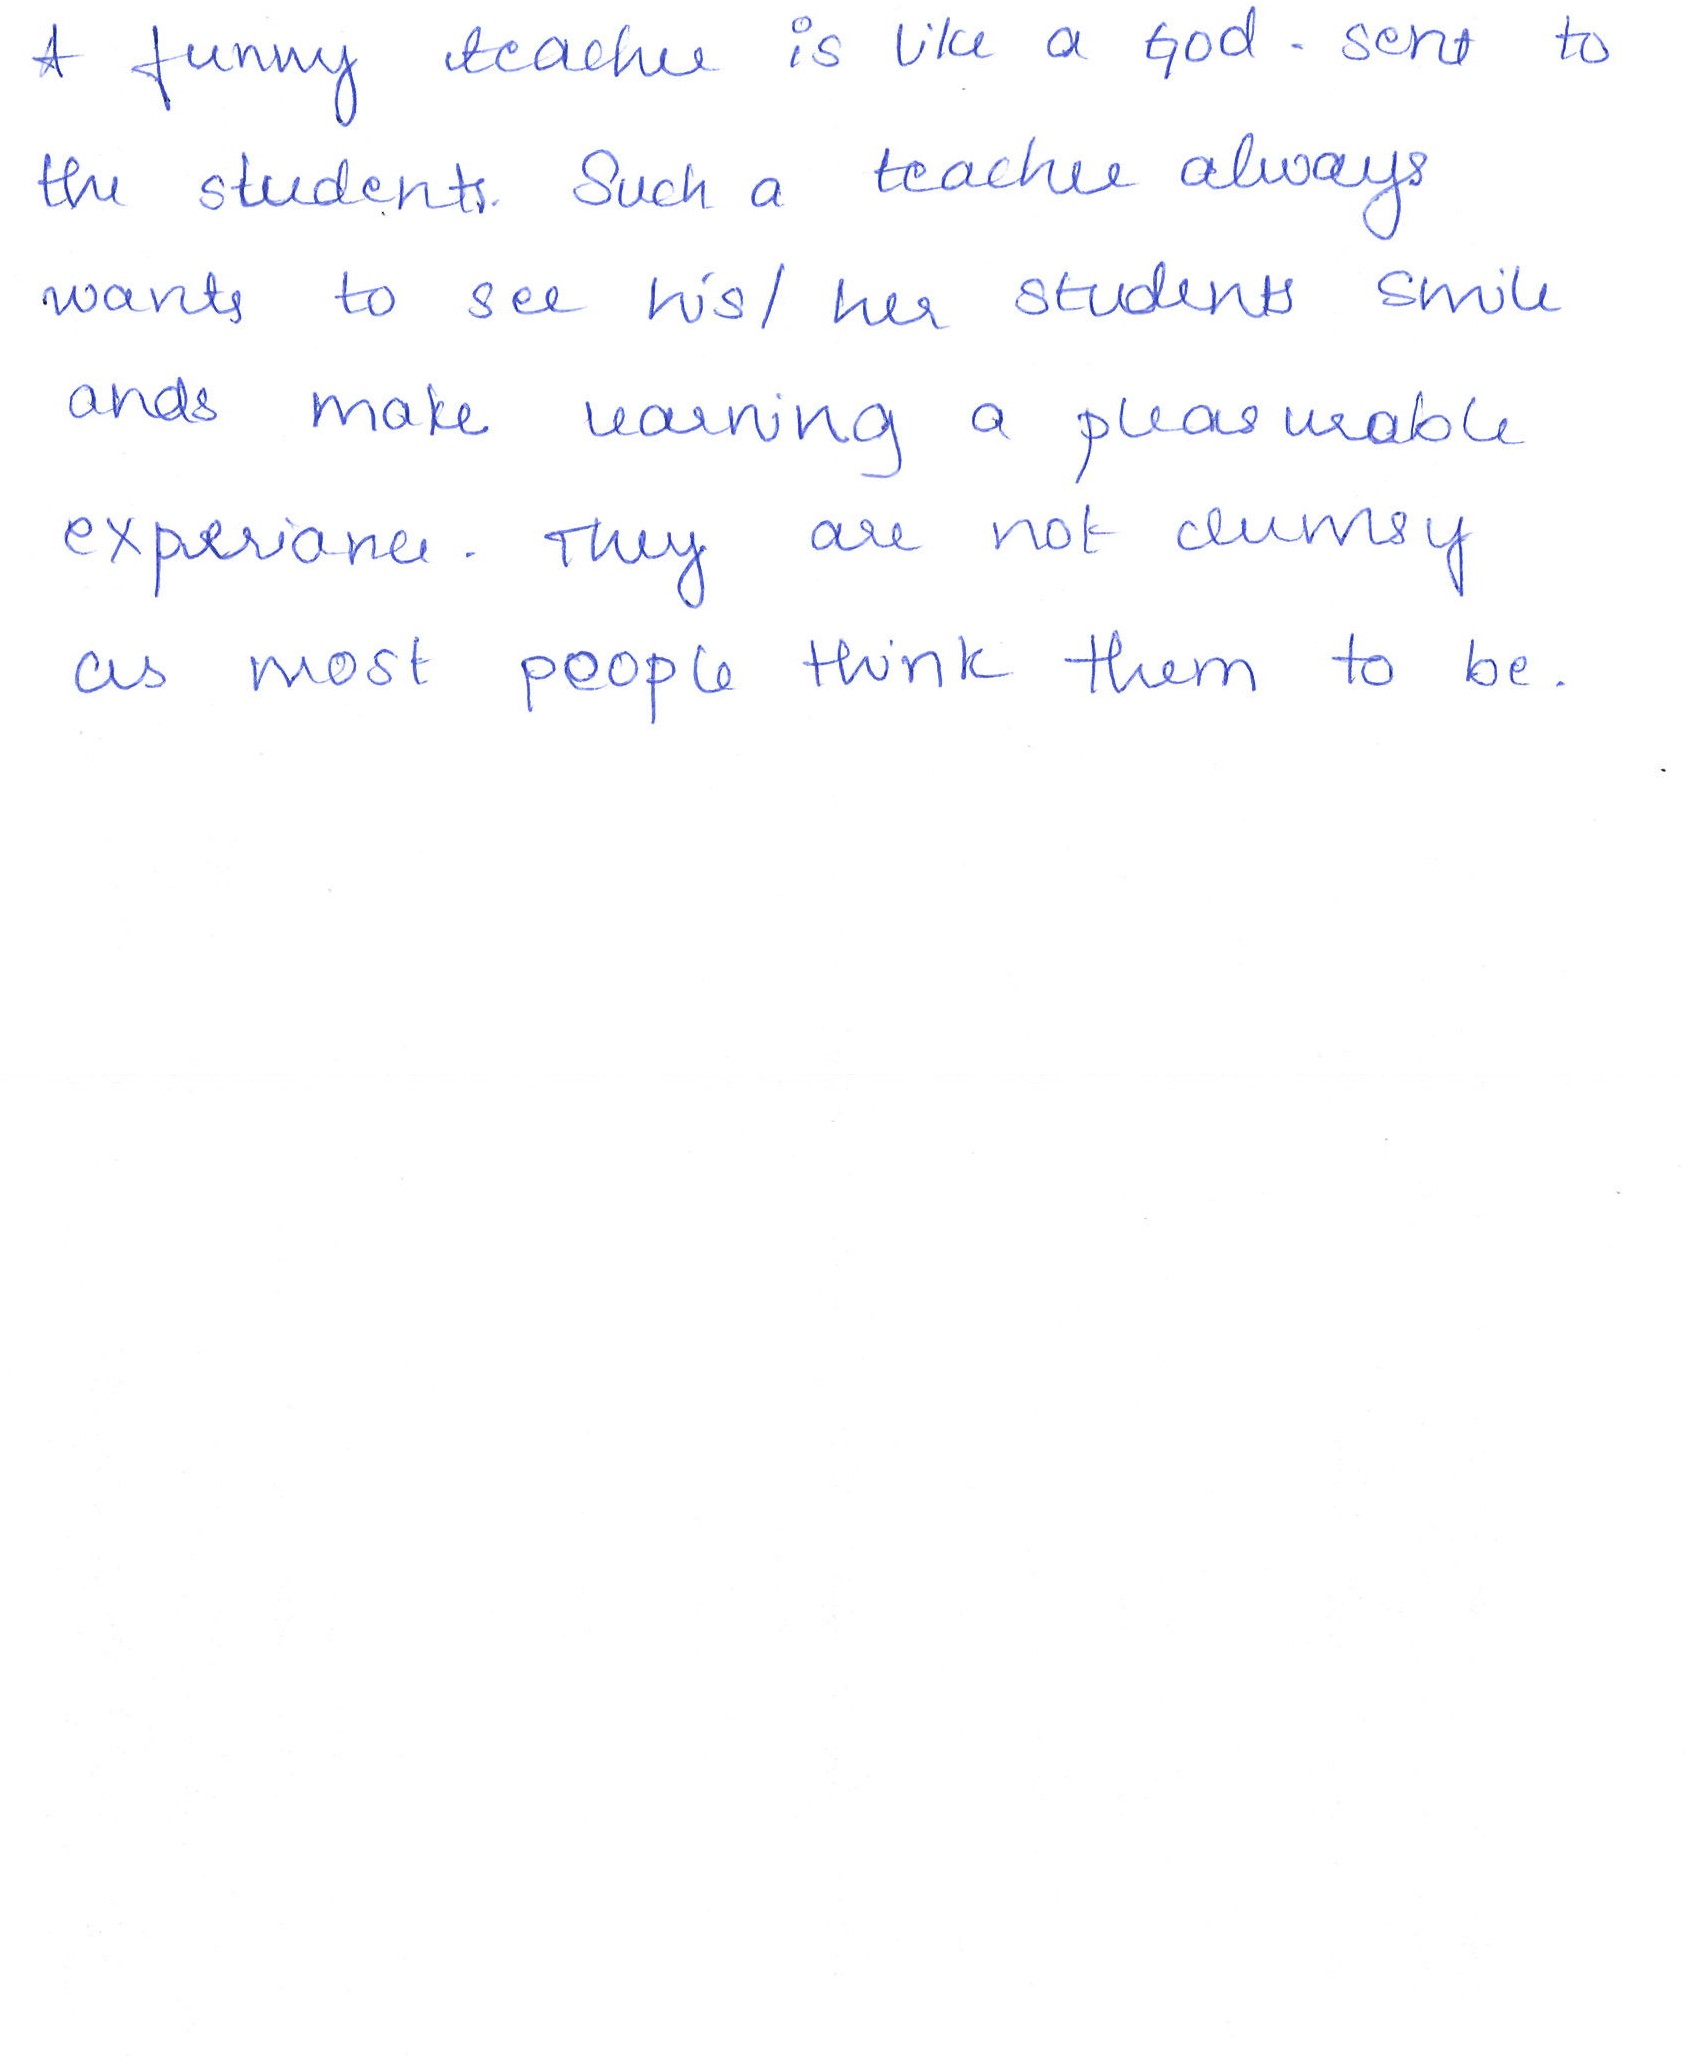 A funny teacher is like a God-sent to
the students. Such a teacher always
wants to see his/ her students smile
ands make learning a pleasurable
experiance. They are not clumsy
as most people think them to be.